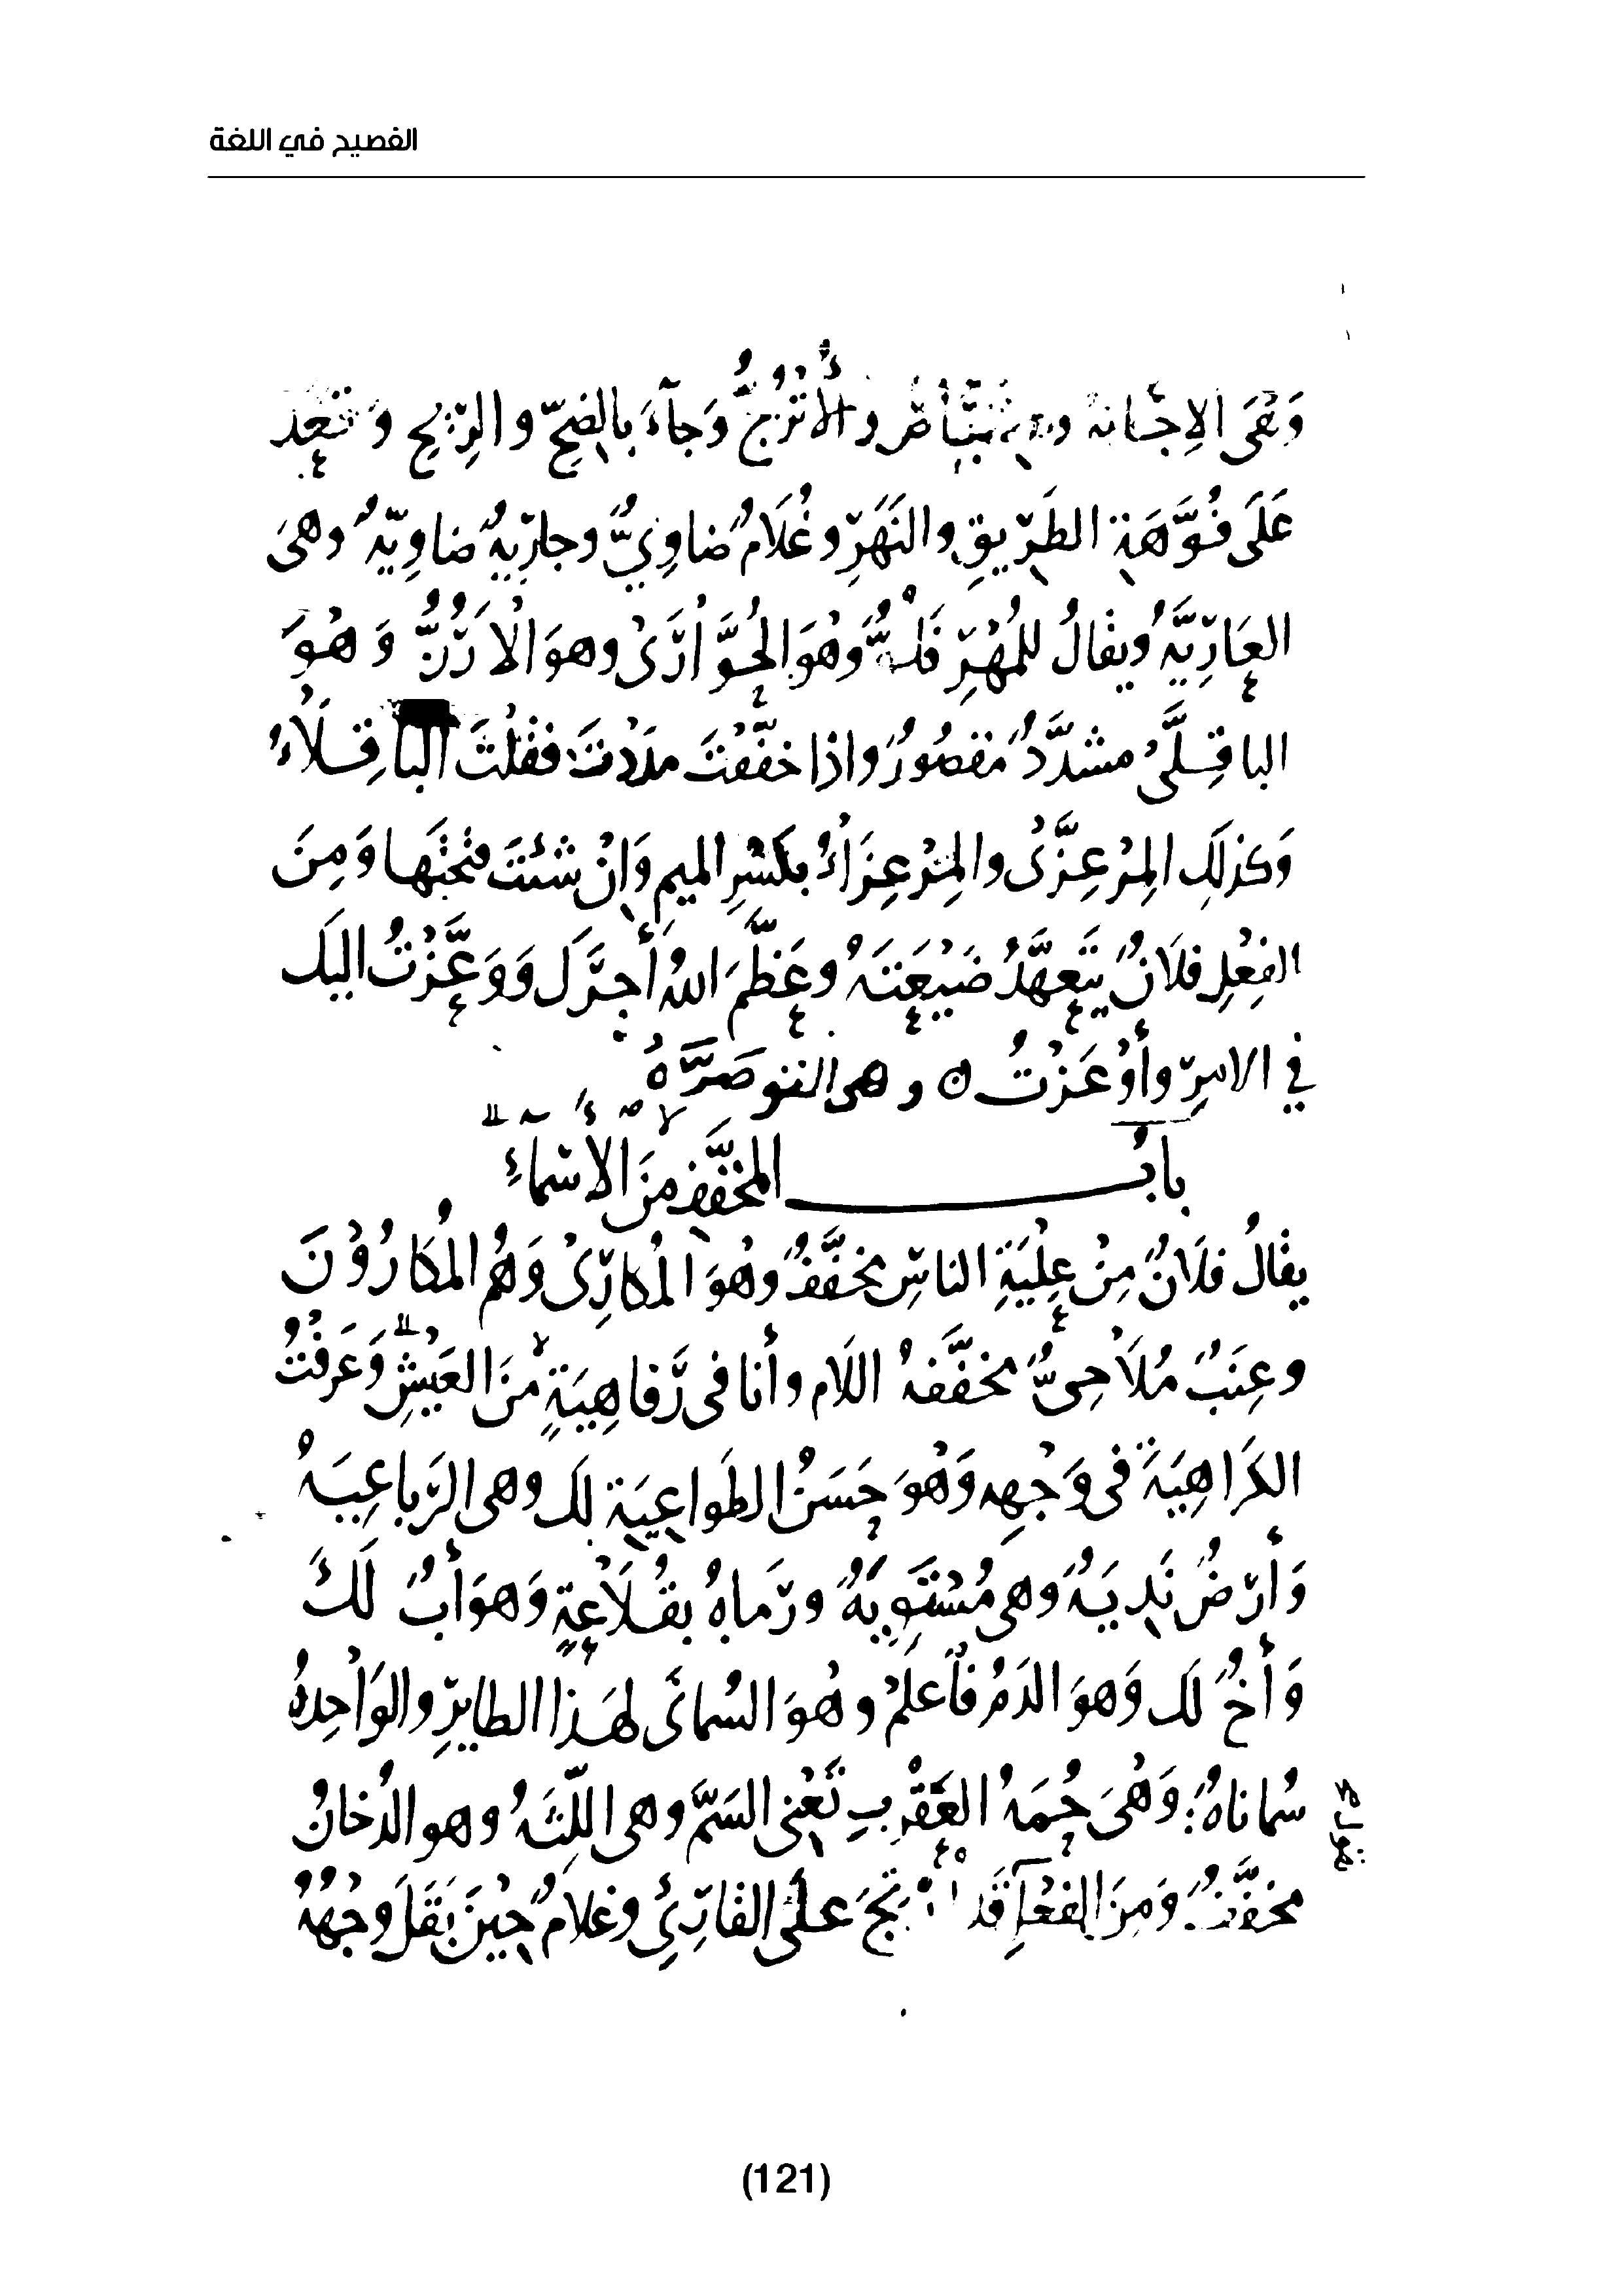 الفصيح في اللغة
وَهْىَ الاِجّانةُ والأُتْرُجُّ وَجآءَ بِالضِحّ والرِّيْحِ وَقَعَدَ
عَلَى فُوَّهَةِ الطَرِيقِ والنَهَرِ وغُلَامٌ ضاوِيٌّ وجارِيةٌ ضاوِيّةٌ وهىَ
العَارِيَّةُ ويقالُ للمُهْرِ فَلُوٌّ وَهْوَ الحُوَّارَىْ وهوَ الْأرُزُّ وَهْوَ
الباقِلَّىْ مشدَّدٌ مقصُورٌ واذا خفَّفْتَ مدَدْتَ فقلْتَ البَاقِلَاءُ
وَكذلِكَ المِرْعِزَّىْ والمِرْعِزَاءُ بكَسْرِ الميمِ وَاِنْ شئتَ فتحْتَها وَمِنَ
الفِعْلِ فلَانٌ يَتَعهَّدُ ضَيْعَتَهُ وعَظَّمَ اللهُ أَجرَكَ وَوَعَّزْتُ اليكَ
في الامرِ وأوْعَزْتُ ٥ وهى القوصَرَّةُ
بابُ المخفَّفِ منَ الأَسْمآءِ
يقالُ فلَانٌ مِنْ عِلْيَةِ الناسِ مخفَّفٌ وهْوَ المُكارِىْ وَهُم المُكَارُوْنَ
وعِنَبٌ مُلَاحِىٌّ مخفَّفةُ اللَام وأنا فى رَفاهِيَةٍ منَ العَيْشِ وَعَرفْتُ
الكَرَاهِيَةَ فى وَجْهِهِ وَهْوَ حَسَنُ الطَواعِيَةِ لكَ وهى الرَباعِيَةُ
وَأَرْضٌ نَدِيَةٌ وهى مُسْتَوِيَةٌ ورَماهُ بقُلَاعةٍ وَهوَ أَبٌ لَكَ
وَأَخٌ لكَ وَهوَ الدَمُ فاعلَمْ وهْوَ السُمانَى لهَذا الطايرِ والوَاحِدةُ
سُماناةٌ وَهْىَ حُمَةُ العَقْرَبِ تَعْنِى السَمَّ وهى اللِثَةُ وهو الدُخانُ
مخفَّفٌ وَمِنَ الفعْلِ قَد اُرْتِجَ علَى القارِئِ وغلامٌ حِيْنَ بَقَلَ وجْهُهُ
(121)